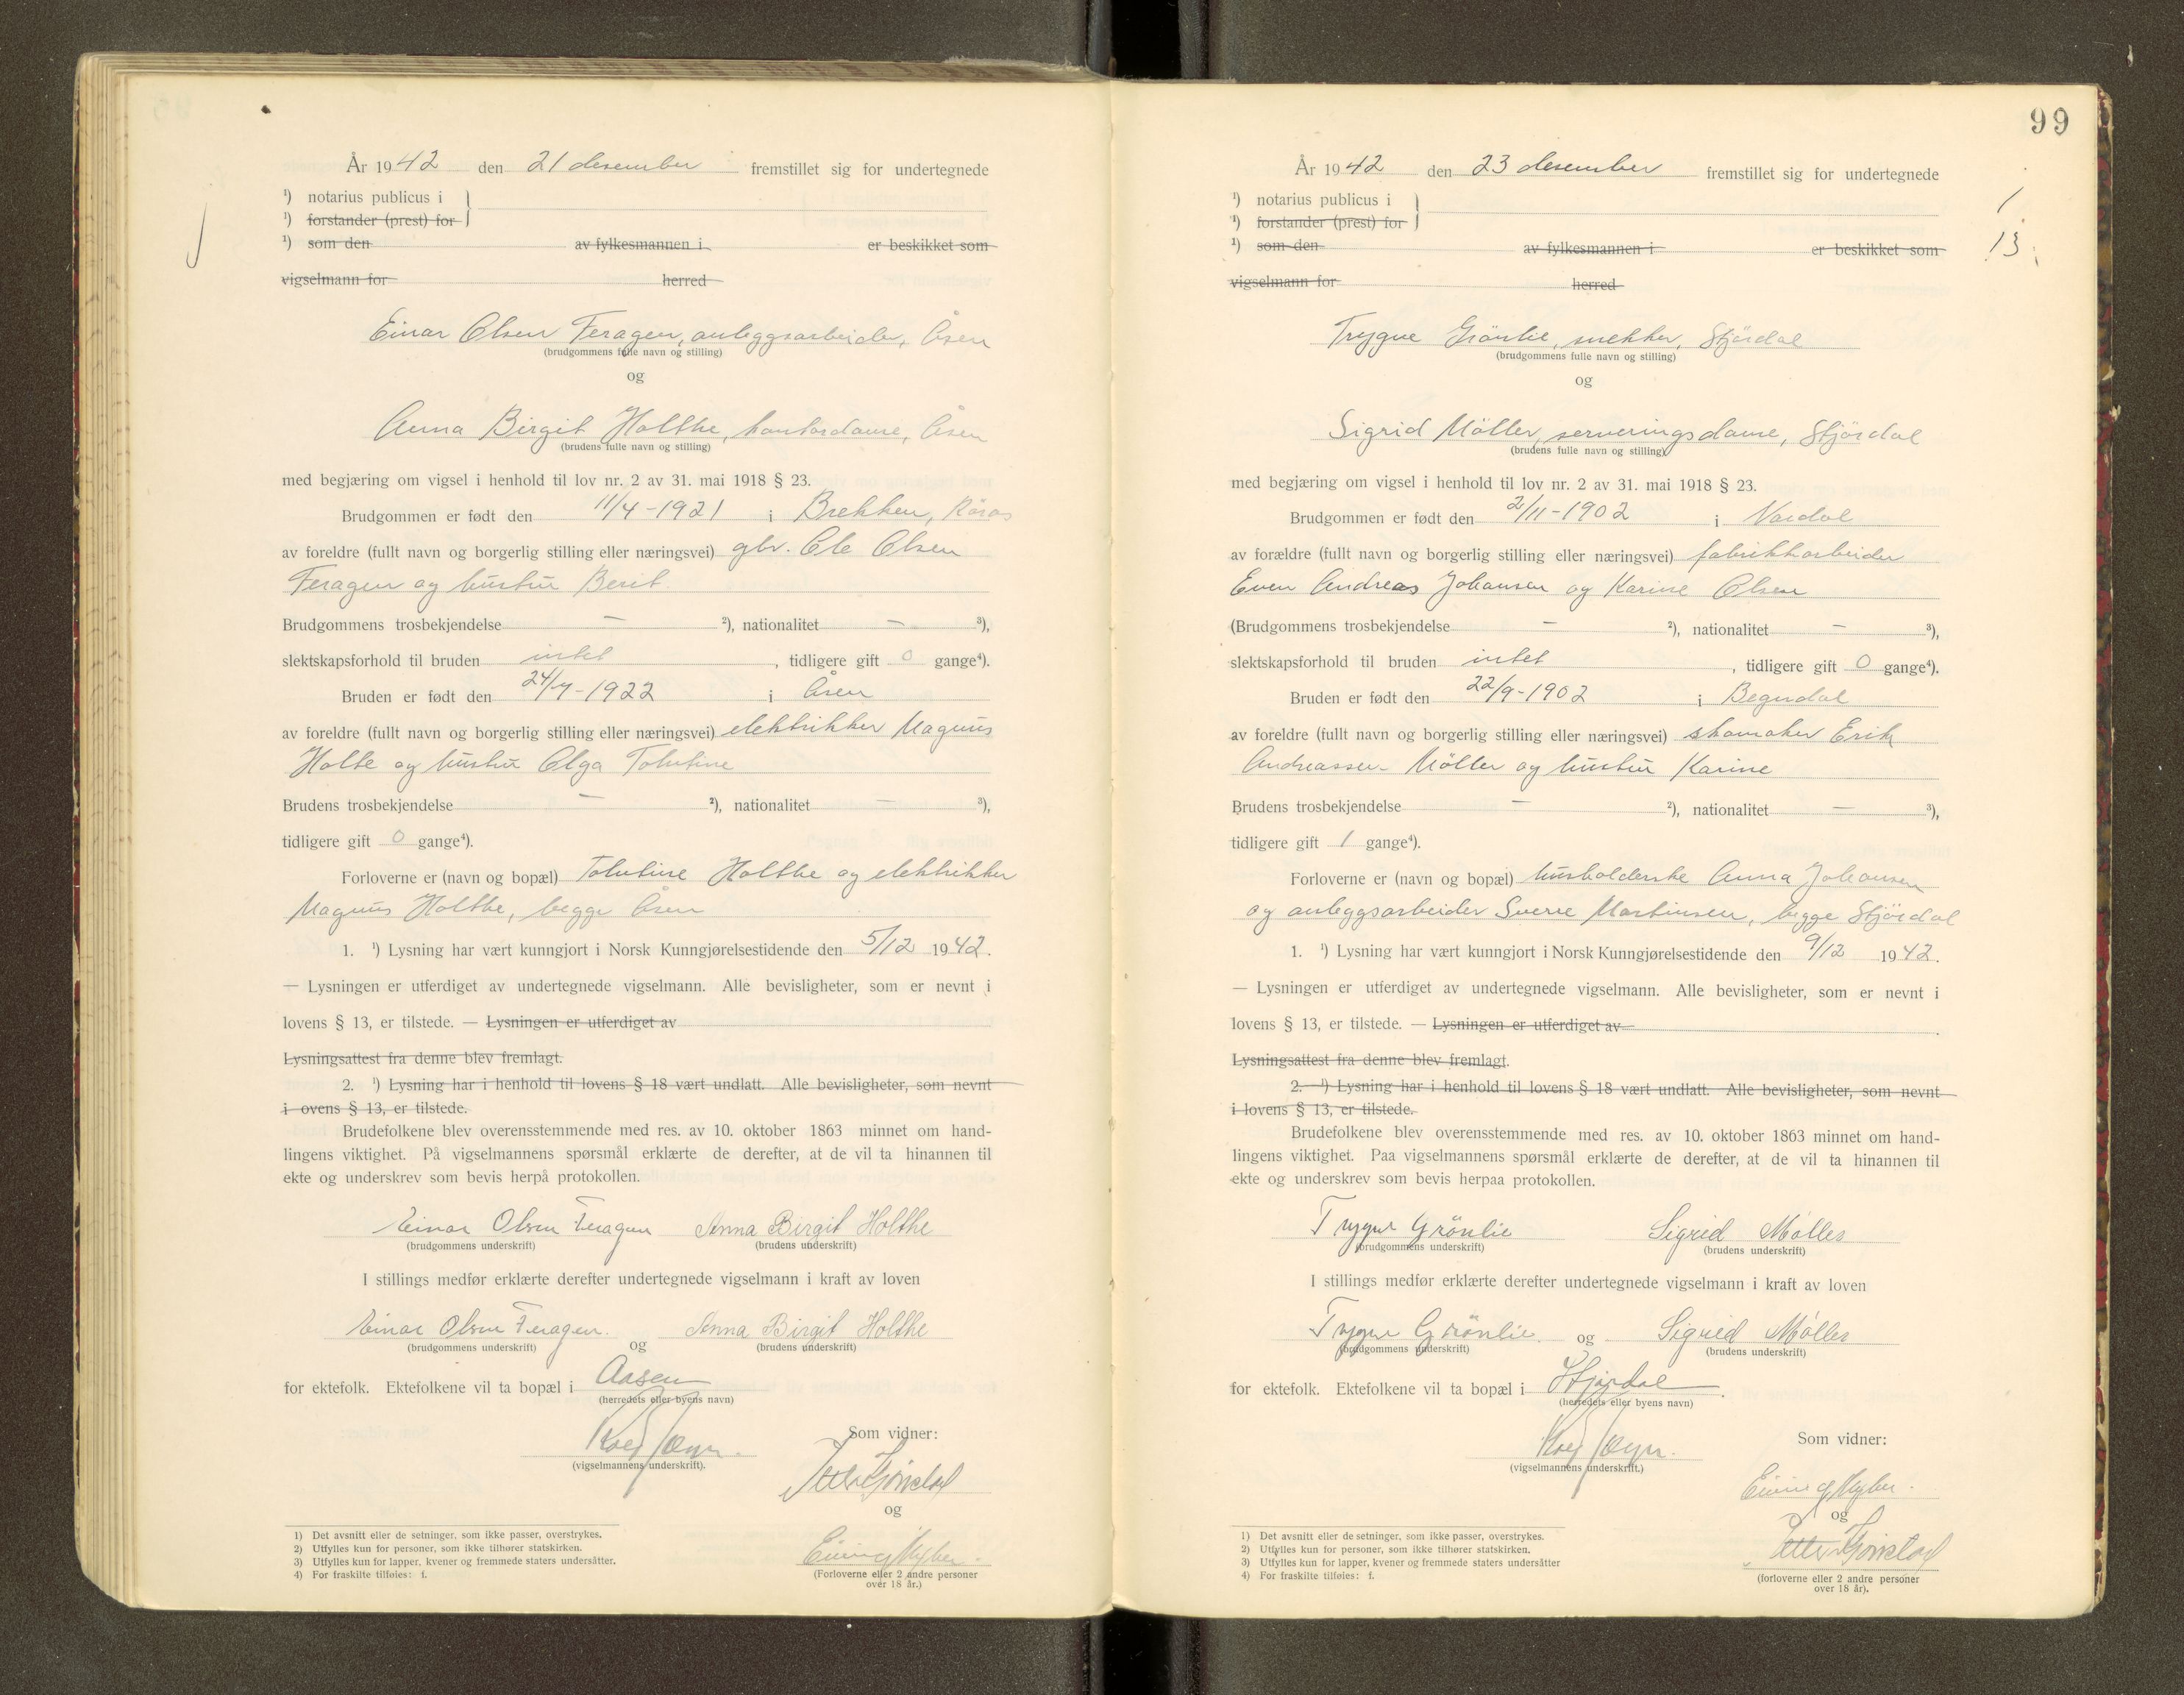 År 1942 den 21 desember fremstillet sig for undertegnede
¹) notarius publicus i
¹) forstander (prest) for
¹) som den av fylkesmannen i er beskikket som
vigselmann for herred
Einar Olsen Feragen, anleggsarbeider, Åsen
(brudgommens fulle navn og stilling)
og
Anna Birgit Holthe, kontordame, Åsen
(brudens fulle navn og stilling)
med begjæring om vigsel i henhold til lov nr. 2 av 31. mai 1918 § 23.
Brudgommen er født den 11/4-1921 i Brekken, Röros
av foreldre (fullt navn og borgerlig stilling eller næringsvei) gbr. Ole Olsen
Feragen og hustru Berit.
Brudgommens trosbekjendelse — ²), nationalitet — ³),
slektskapsforhold til bruden intet, tidligere gift 0 gange⁴).
Bruden er født den 24/4-1922 i Åsen
av foreldre (fullt navn og borgerlig stilling eller næringsvei) elektrikker Magnus
Holte og hustru Olga
Brudens trosbekjendelse — ²), nationalitet — ³),
tidligere gift 0 gange⁴).
Forloverne er (navn og bopæl) Holthe og elektrikker
Magnus Holthe, begge Åsen
1. ¹) Lysning har vært kunngjort i Norsk Kunngjørelsestidende den 5/12 1942.
— Lysningen er utferdiget av undertegnede vigselmann. Alle bevisligheter, som er nevnt i
lovens § 13, er tilstede. — Lysningen er utferdiget av
Lysningsattest fra denne blev fremlagt.
2. ¹) Lysning har i henhold til lovens § 18 vært undlatt. Alle bevisligheter, som nevnt
i ovens § 13, er tilstede.
Brudefolkene blev overensstemmende med res. av 10. oktober 1863 minnet om hand-
lingens viktighet. På vigselmannens spørsmål erklærte de derefter, at de vil ta hinannen til
ekte og underskrev som bevis herpå protokollen.
Einar Olsen Feragen Anna Birgit Holthe
(brudgommens underskrift) (brudens underskrift)
I stillings medfør erklærte derefter undertegnede vigselmann i kraft av loven
Einar Olsen Feragen. og Anna Birgit Holthe
(brudgommens underskrift) (brudens underskrift)
for ektefolk. Ektefolkene vil ta bopæl i Aasen
(herredets eller byens navn)
Som vidner:
(vigselmannens underskrift).
og
(Forloverne eller 2 andre personer
over 18 år.)
1) Det avsnitt eller de setninger, som ikke passer, overstrykes.
2) Utfylles kun for personer, som ikke tilhører statskirken.
3) Utfylles kun for lapper, kvener og fremmede staters undersåtter.
4) For fraskilte tilføies: f.
99
År 1942 den 23 desember fremstillet sig for undertegnede
¹) notarius publicus i
¹) forstander (prest) for
¹) som den av fylkesmannen i er beskikket som
13.
vigselmann for herred
Trygve Grönlie, snekker, Stjördal
(brudgommens fulle navn og stilling)
og
Sigrid Möller, serveringsdame, Stjördal
(brudens fulle navn og stilling)
med begjæring om vigsel i henhold til lov nr. 2 av 31. mai 1918 § 23.
Brudgommen er født den 2/11-1902 i Vardal
av forældre (fullt navn og borgerlig stilling eller næringsvei) fabrikkarbeider
Even Andreas Johansen og Karine Olsen
(Brudgommens trosbekjendelse — ²), nationalitet — ³),
slektskapsforhold til bruden intet, tidligere gift 0 gange⁴).
Bruden er født den 22/9-1902 i Begndal
av foreldre (fullt navn og borgerlig stilling eller næringsvei) skomaker Erik
Andreassen Möller og hustru Karine
Brudens trosbekjendelse — ²), nationalitet — ³),
tidligere gift 1 gange⁴).
Forloverne er (navn og bopæl) husholderske Anna Johansen
og anleggsarbeider Sverre Martinsen, begge Stjördal
1. ¹) Lysning har vært kunngjort i Norsk Kunngjørelsestidende den 9/12 1942.
— Lysningen er utferdiget av undertegnede vigselmann. Alle bevisligheter, som er nevnt i
lovens § 13, er tilstede. — Lysningen er utferdiget av
Lysningsattest fra denne blev fremlagt.
2. ¹) Lysning har i henhold til lovens § 18 vært undlatt. Alle bevisligheter, som nevnt
i lovens § 13, er tilstede.
Brudefolkene blev overensstemmende med res. av 10. oktober 1863 minnet om hand-
lingens viktighet. Paa vigselmannens spørsmål erklærte de derefter, at de vil ta hinannen til
ekte og underskrev som bevis herpaa protokollen.
Trygve Grönlie Sigrid Møller
(brudgommens underskrift) (brudens underskrift)
I stillings medfør erklærte derefter undertegnede vigselmann i kraft av loven
Trygve Grönlie og Sigrid Møller
(brudgommens underskrift) (brudens underskrift)
for ektefolk. Ektefolkene vil ta bopæl i Stjørdal.
(herredets eller byens navn)
Som vidner:
(vigselmannens underskrift.)
og
(forloverne eller 2 andre personer
over 18 år).
1) Det avsnitt eller de setninger, som ikke passer, overstrykes.
2) Utfylles kun for personer, som ikke tilhører statskirken.
3) Utfylles kun for lapper, kvener og fremmede staters undersåtter
4) For fraskilte tilføies: f.